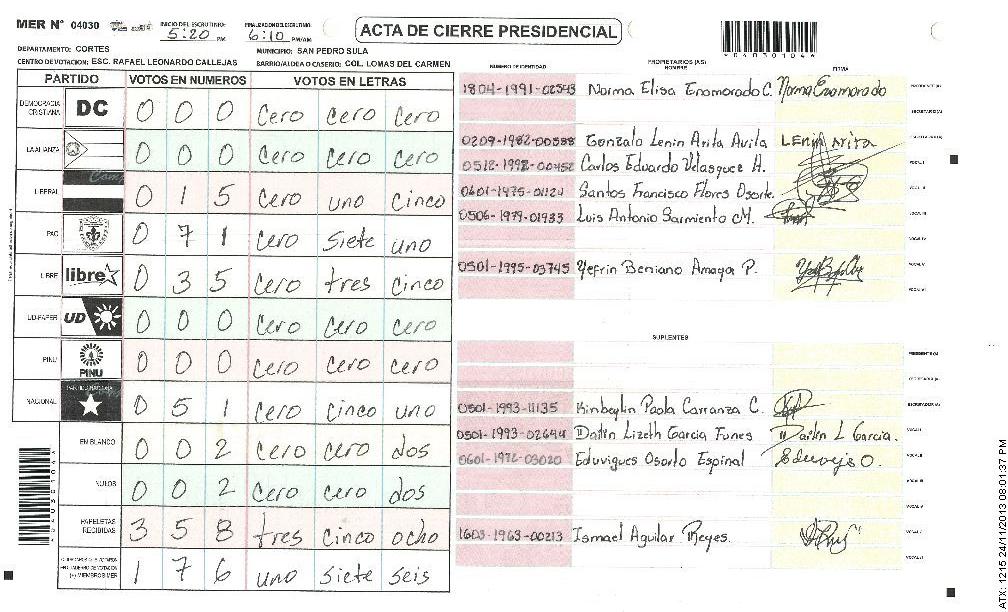 MER N° 04030
INICIO DEL ESCRUTINIO: 5:20 PM
FINALIZACION DEL ESCRUTINIO: 6:10 PM/AM
ACTA DE CIERRE PRESIDENCIAL
*04030104*
DEPARTAMENTO: CORTES
MUNICIPIO: SAN PEDRO SULA
CENTRO DE VOTACION: ESC. RAFAEL LEONARDO CALLEJAS
BARRIO/ALDEA O CASERIO: COL. LOMAS DEL CARMEN
PARTIDO VOTOS EN NUMEROS VOTOS EN LETRAS
DEMOCRACIA CRISTIANA DC 0 0 0 Cero cero cero
LA ALIANZA 0 0 0 cero cero cero
LIBERAL 0 1 5 cero uno cinco
PAC 0 7 1 cero siete uno
LIBRE libre 0 3 5 cero tres cinco
UD-FAPER UD 0 0 0 cero cero cero
PINU PINU 0 0 0 cero cero cero
NACIONAL PARTIDO NACIONAL 0 5 1 cero cinco uno
EN BLANCO 0 0 2 cero cero dos
NULOS 0 0 2 cero cero dos
PAPELETAS RECIBIDAS 3 5 8 tres cinco ocho
(+) MIEMBROS MER 1 7 6 uno siete seis
NUMERO DE IDENTIDAD
PROPIETARIOS (AS)
NOMBRE
FIRMA
1804-1991-02543 Norma Elisa Enamorado C. Norma Enamorado
PRESIDENTE (A)
SECRETARIO (A)
0209-1982-00588 Gonzalo Lenin Avila Avila LENIN Avila
ESCRUTADOR (A)
0512-1992-00452 Carlos Eduardo Velasquez A.
VOCAL I
0601-1975-01124 Santos Francisco Flores Osorto.
VOCAL II
0506-1979-01933 Luis Antonio Sarmiento M.
VOCAL III
VOCAL IV
0501-1995-03745 Yefrin Beniano Amaya P.
VOCAL V
VOCAL VI
SUPLENTES
PRESIDENTE (A)
SECRETARIO (A)
0501-1993-11135 Kinbeylin Paola Carranza C.
ESCRUTADOR (A)
0501-1993-02644 Dailin Lizeth Garcia Funes Dailin L Garcia.
VOCAL I
0601-1972-03020 Eduvigues Osorto Espinal Eduvejs O.
VOCAL II
VOCAL III
VOCAL IV
1603-1963-00213 Ismael Aguilar Reyes.
VOCAL V
VOCAL VI
*04030104*
ATX: 1215 24/11/2013 08:01:37 PM